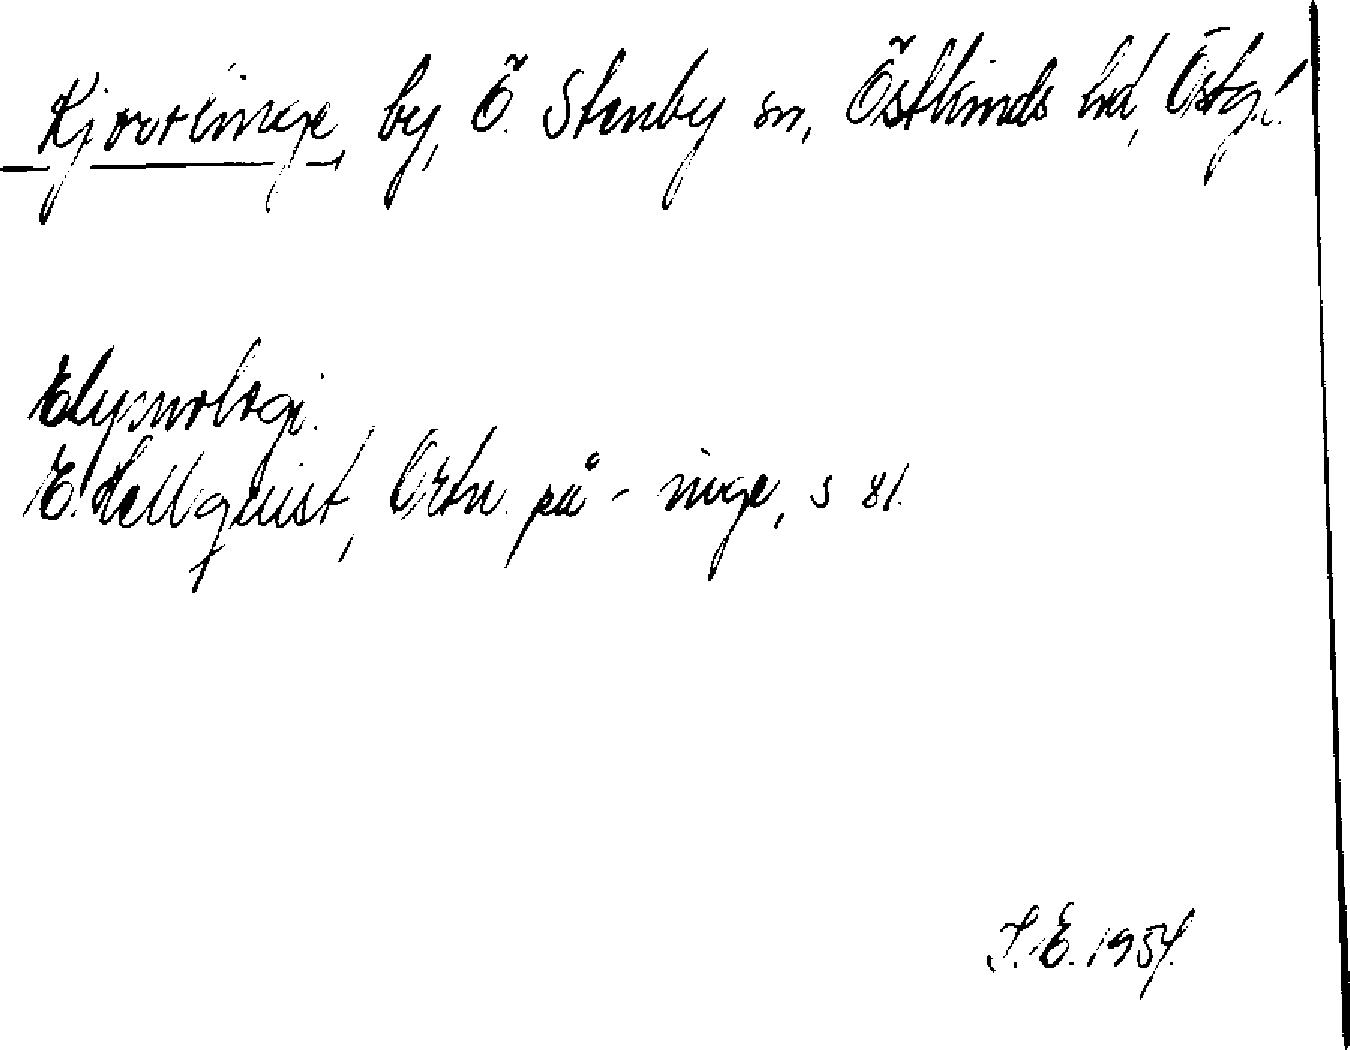 Kjorstinge, by, Ö. Stenby sn, Östkinds hd, Östg.l.
Etymologi.
E. Hellquist, Ortn. på -inge, s 81.
S. E. 1954.